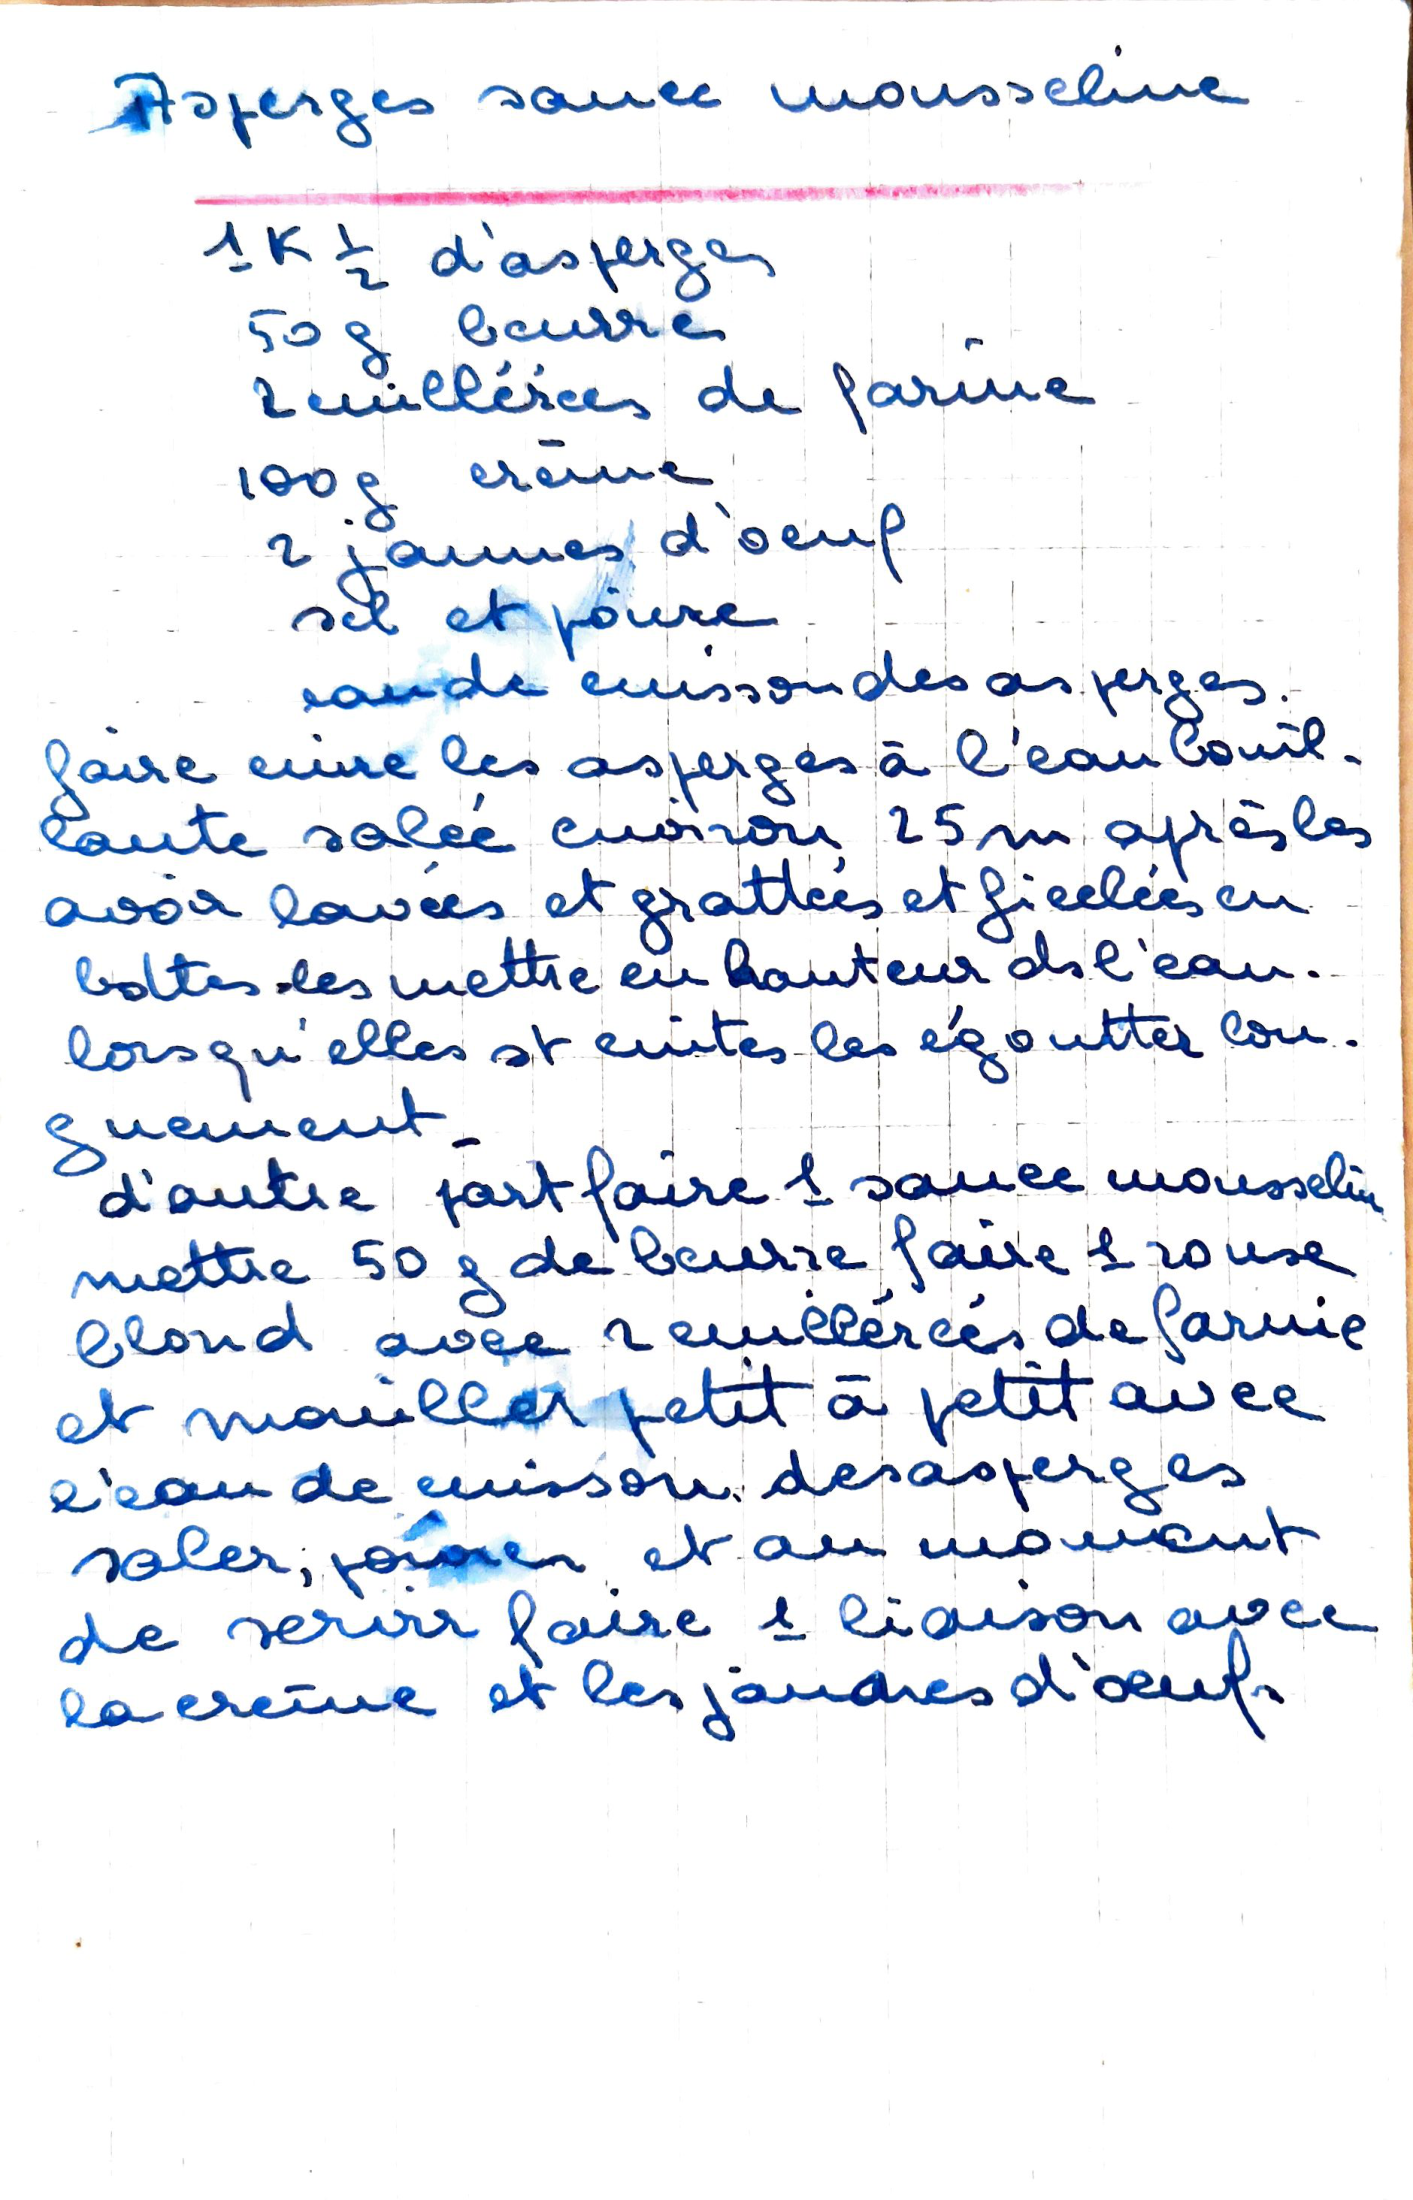 Asperges sauce mousseline
1K 1/2 d'asperges
50g beurre
2 cuillérées de farine
100g crème
2 jaunes d'oeuf
sel et poivre
eau de cuisson des asperges.
faire cuire les asperges à l'eau bouil-
lante salée environ 25m après les
avoir lavées et grattées et ficelées en
bottes les mettre en hauteur ds l'eau.
lorsqu'elles st cuites les égoutter lon-
guement_
d'autre part faire 1 sauce mousselin
mettre 50 g de beurre faire 1 rouse
blond avec 2 cuillérées de farine
et mouiller petit à petit avec
l'eau de cuisson. des asperges
saler, poivrer et au moment
de servir faire 1 liaison avec
la crème et les jaunes d'oeufs